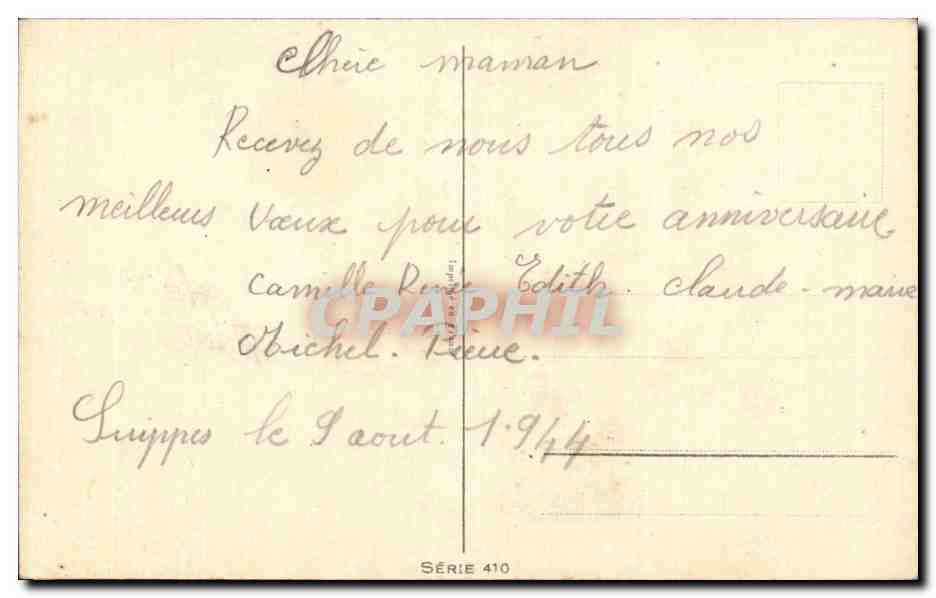 Chère maman
Recevez de nous tous nos
meilleurs vœux pour votre anniversaire
Camille Renée Edith. Claude-marie
Michel. Pierre.
Suippes le 9 aout. 1.944
Imprimé en
CPAPHIL
SÉRIE 410